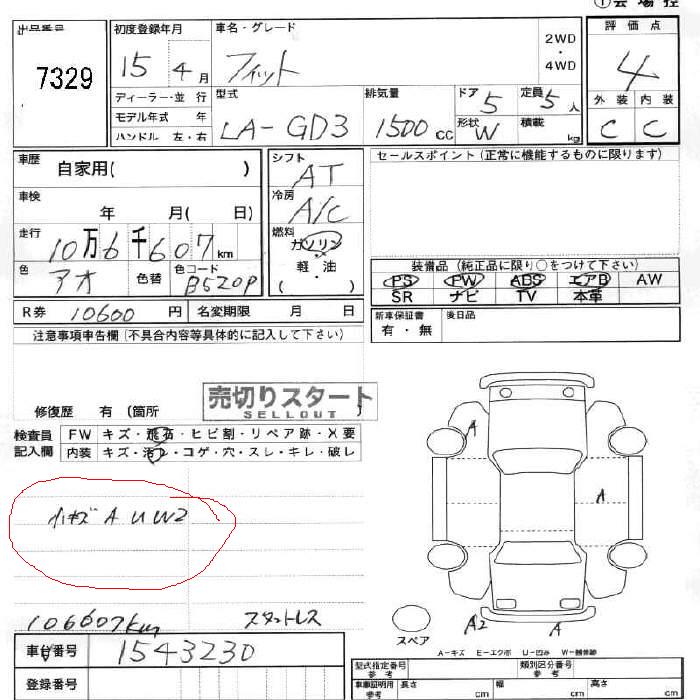 ①会場控
出品番号 7329
初度登録年月 15 4月
車名・グレード フィット
2WD・4WD
評価点 4
ディーラー・並行
モデル年式 年
ハンドル 左・右
型式 LA-GD3
排気量 1500cc
ドア 5
定員 5人
形状 W
積載 kg
外装 内装
C C
車歴 自家用( )
シフト AT
セールスポイント(正常に機能するものに限ります)
車検 年 月( 日)
冷房 A/C
走行 10万6千607km
燃料 ガソリン・軽・油
( )
色 アオ
色替
色コード B520P
装備品(純正品に限り○をつけて下さい)
PS PW ABS エアB AW
SR ナビ TV 本革
R券 10600円
名変期限 月 日
新車保証書 有・無
後日品
注意事項申告欄(不具合内容等具体的に記入して下さい)
修復歴 有(箇所
売切りスタート
SELLOUT
検査員記入欄
FW キズ・飛石・ヒビ割・リペア跡・X要
内装 キズ・汚レ・コゲ・穴・スレ・キレ・破レ
小キズ A U W2
A
A
106607km
スタットレス
A2
A
スペア
A-キズ E-エクボ U-凹み W-補修跡
車台番号 1543230
登録番号
型式指定番号 参考
類別区分番号 参考
車庫証明用 参考 長さ cm 幅 cm 高さ cm